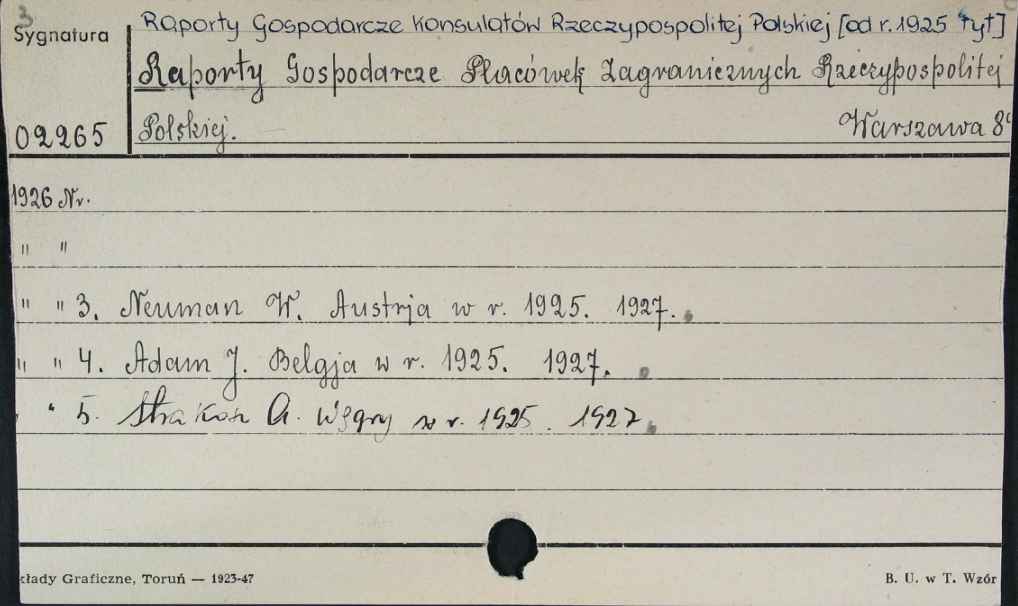 3
Raporty Gospodarcze Konsulatów Rzeczypospolitej Polskiej [od r. 1925 tyt]
Sygnatura
Raporty Gospodarcze Placówek Zagranicznych Rzeczypospolitej
02265 Polskiej. Warszawa 8°
1926 Nr.
" "
" " 3. Neuman W. Austrja w r. 1925. 1927.
" " 4. Adam J. Belgja w r. 1925. 1927.
" " 5. A. Węgry w r. 1925. 1927.
kłady Graficzne, Toruń — 1923-47 B. U. w T. Wzór